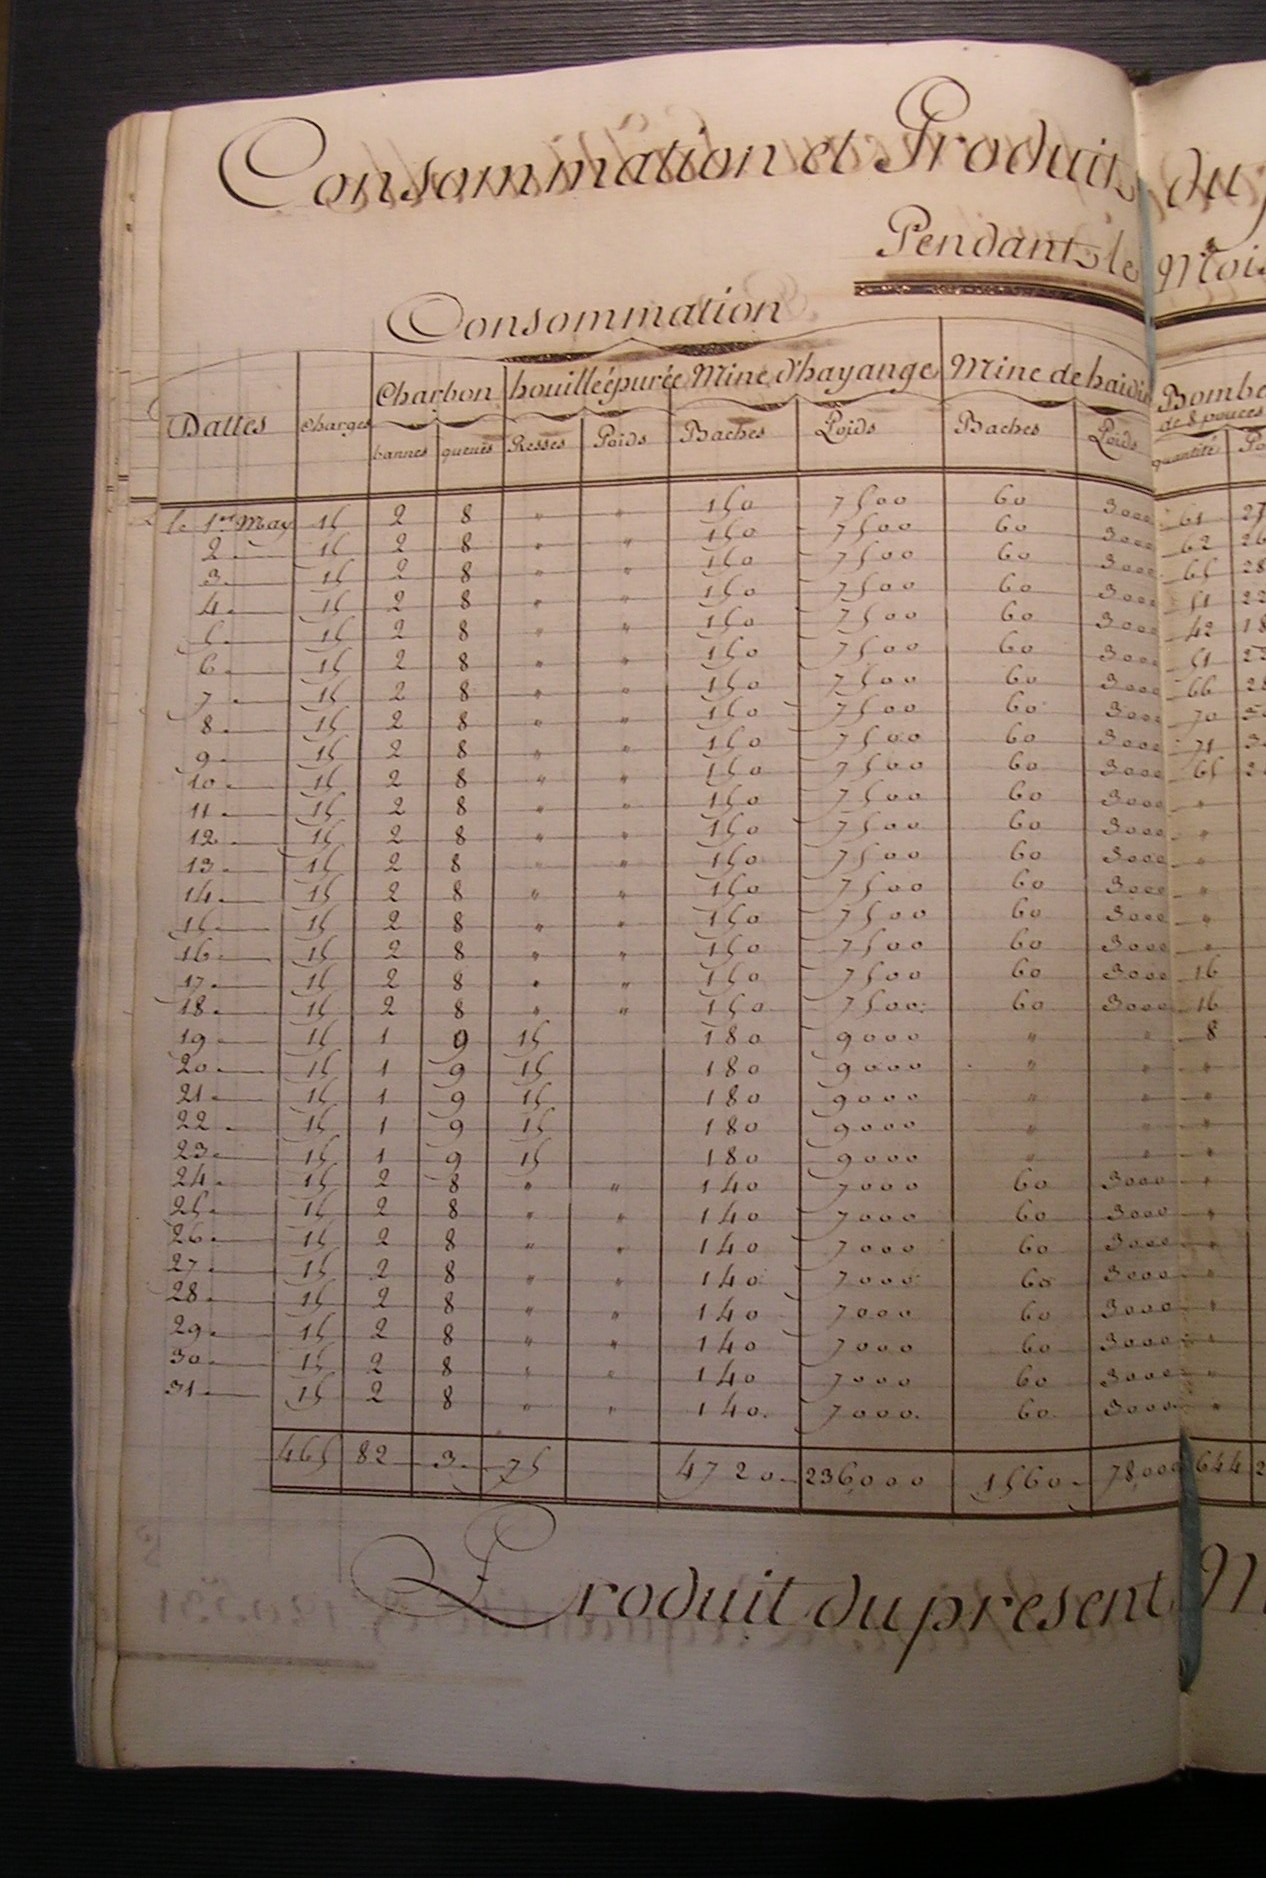 Consommation et Produit du
Pendant le Mois
Consommation
Dattes Charges Charbon houille épurée Mine d'hayange Mine de
Bombe de 8 pouces
bannes queues Resses Poids Baches Poids Baches Poids quantité
le 1er May 15 2 8 " " 150 7500 60 3000 61
2 15 2 8 " " 150 7500 60 3000 62
3 15 2 8 " " 150 7500 60 3000 65
4 15 2 8 " " 150 7500 60 3000 51
5 15 2 8 " " 150 7500 60 3000 42
6 15 2 8 " " 150 7500 60 3000 51
7 15 2 8 " " 150 7500 60 3000 66
8 15 2 8 " " 150 7500 60 3000 70
9 15 2 8 " " 150 7500 60 3000 71
10 15 2 8 " " 150 7500 60 3000 65
11 15 2 8 " " 150 7500 60 3000 "
12 15 2 8 " " 150 7500 60 3000 "
13 15 2 8 " " 150 7500 60 3000 "
14 15 2 8 " " 150 7500 60 3000 "
15 15 2 8 " " 150 7500 60 3000 "
16 15 2 8 " " 150 7500 60 3000 "
17 15 2 8 " " 150 7500 60 3000 16
18 15 2 8 " " 150 7500 60 3000 16
19 15 1 9 15 180 9000 " " 8
20 15 1 9 15 180 9000 " " "
21 15 1 9 15 180 9000 " " "
22 15 1 9 15 180 9000 " " "
23 15 1 9 15 180 9000 " " "
24 15 2 8 " " 140 7000 60 3000 "
25 15 2 8 " " 140 7000 60 3000 "
26 15 2 8 " " 140 7000 60 3000 "
27 15 2 8 " " 140 7000 60 3000 "
28 15 2 8 " " 140 7000 60 3000 "
29 15 2 8 " " 140 7000 60 3000 "
30 15 2 8 " " 140 7000 60 3000 "
31 15 2 8 " " 140 7000 60 3000 "
465 82 3 75 4720 236000 1560 78000 644
Produit du present M